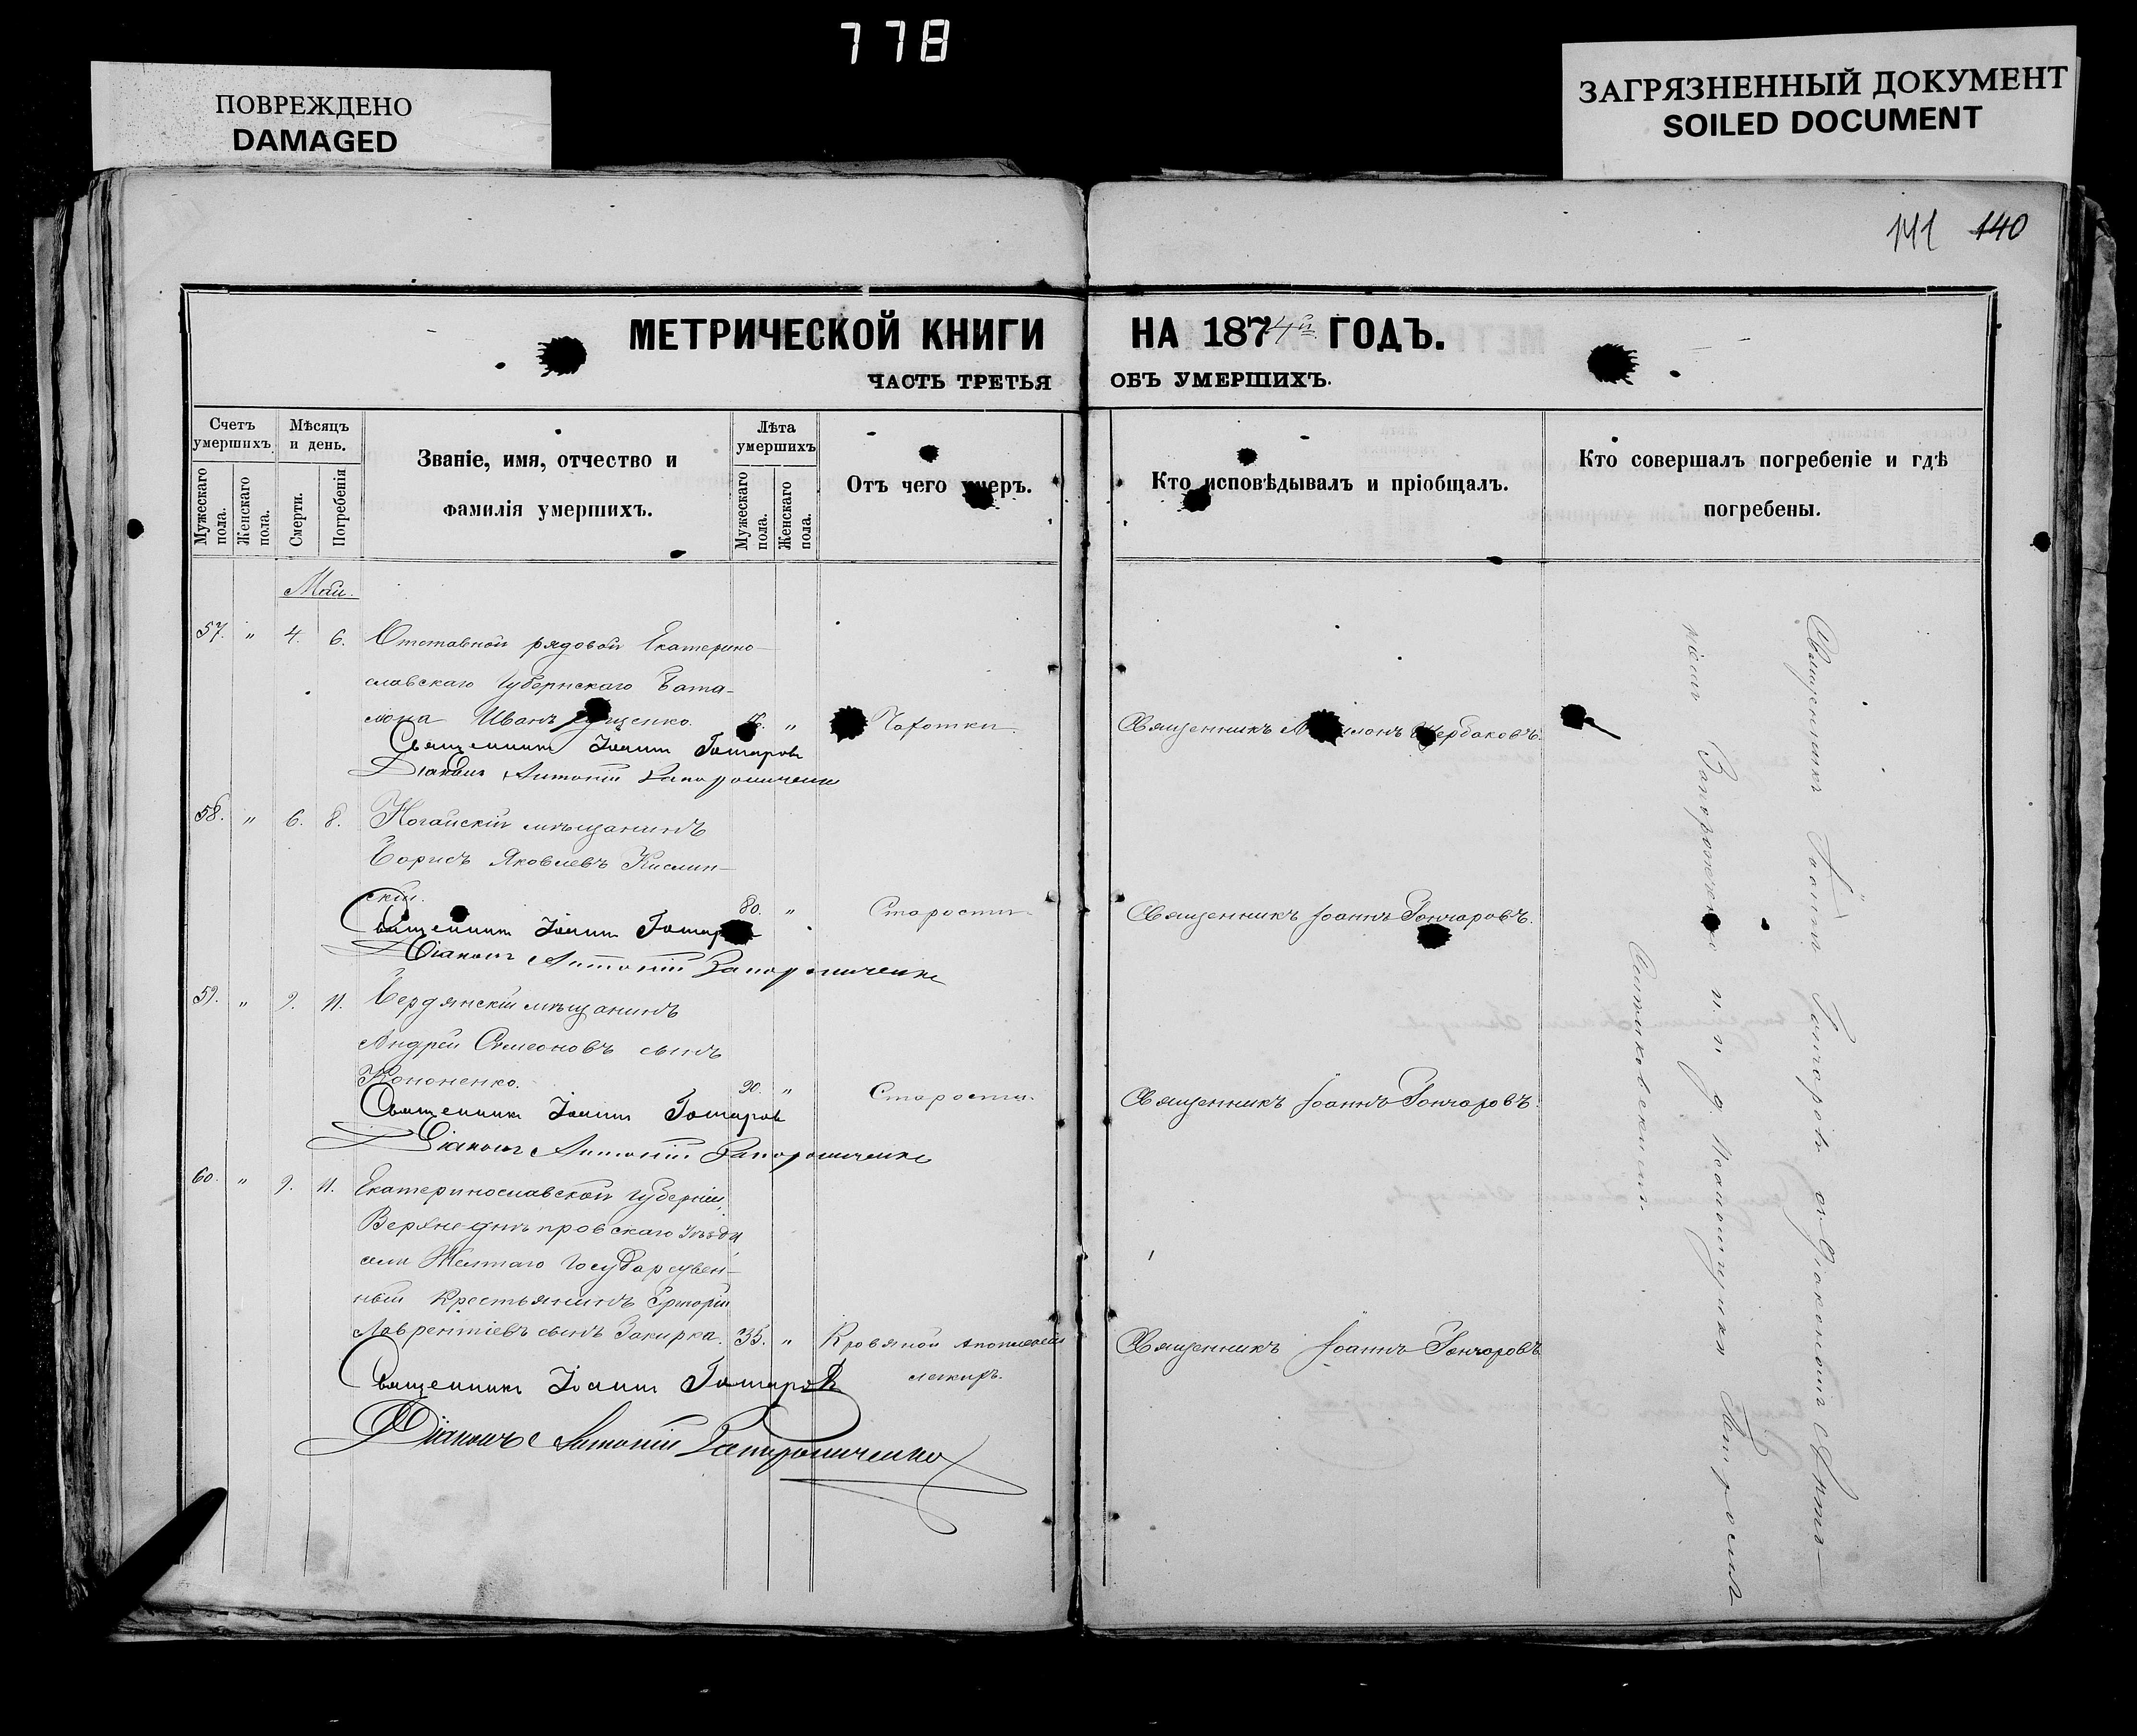 778
ПОВРЕЖДЕНО
DAMAGED
ЗАГРЯЗНЕННЫЙ ДОКУМЕНТ
SOILED DOCUMENT
141 140
МЕТРИЧЕСКОЙ КНИГИ НА 1874й ГОДЪ.
ЧАСТЬ ТРЕТЬЯ ОБЪ УМЕРШИХЪ.
Счетъ умершихъ.
Мужескаго пола.
Женскаго пола.
Мѣсяцъ и день.
Смерти.
Погребенія
Званіе, имя, отчество и
фамилія умершихъ.
Лѣта умершихъ
Мужескаго пола.
Женскаго пола.
Отъ чего умеръ.
Кто исповѣдывалъ и пріобщалъ.
Кто совершалъ погребеніе и гдѣ
погребены.
Май.
57. " 4. 6. Отставной рядовой Екатерино-
славскаго Губернскаго Бата-
лона Иванъ " Чахотки. Священникъ Щербаковъ.
Священникъ Іоаннъ Гончаровъ
Діаконъ Антоній Запорожченко
58. " 6. 8. Ногайскій мѣщанинъ
Борисъ Яковлевъ Кислин-
скій. 80. " Старости. Священникъ Іоаннъ Гончаровъ.
Священникъ Іоаннъ Гончаровъ
Діаконъ Антоній Запорожченко
59. " 9. 11. Бердянскій мѣщанинъ
Андрей Симеоновъ сынъ
Кононенко. 90. " Старости. Священникъ Іоаннъ Гончаровъ.
Священникъ Іоаннъ Гончаровъ
Діаконъ Антоній Запорожченко
60. " 9. 11. Екатеринославской губерніи,
Верхнеднѣпровскаго уѣзда,
села Желтаго Государствен-
ный крестьянинъ Григорій
Лаврентіевъ сынъ Закирка. 35. " Кровяной апоплексіи Священникъ Іоаннъ Гончаровъ
легкихъ.
Священникъ Іоаннъ Гончаровъ
Діаконъ Антоній Запорожченко
Священникъ Іоаннъ Гончаровъ съ Діакономъ Анто-
ніемъ и. п. д. Псаломщика Петромъ